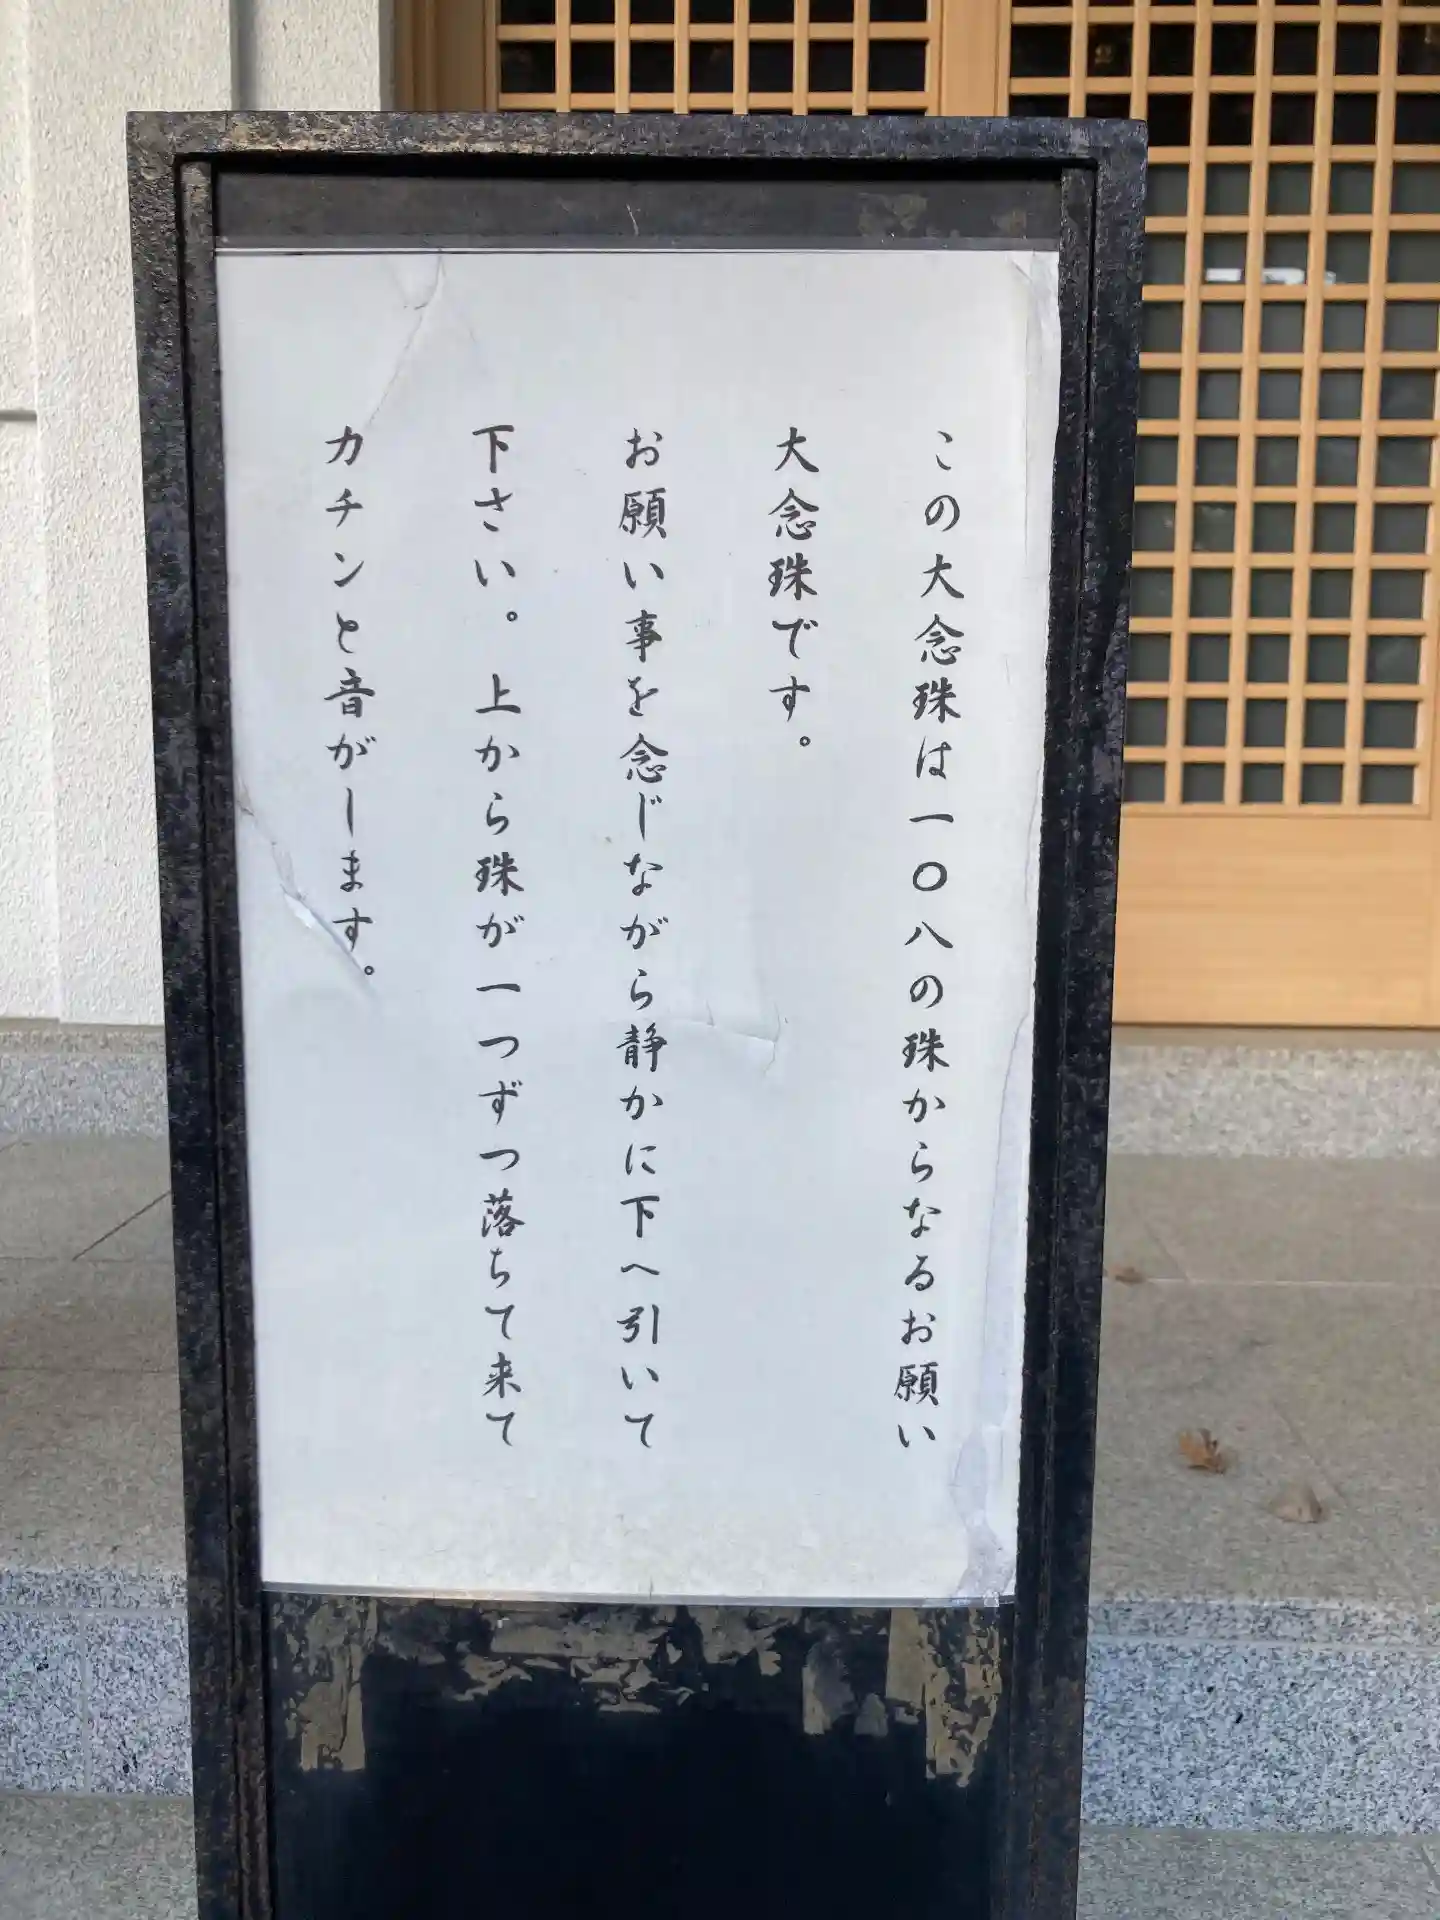 この大念珠は一〇八の珠からなるお願い
大念珠です。
お願い事を念じながら静かに下へ引いて
下さい。上から珠が一つずつ落ちて来て
カチンと音がーます。